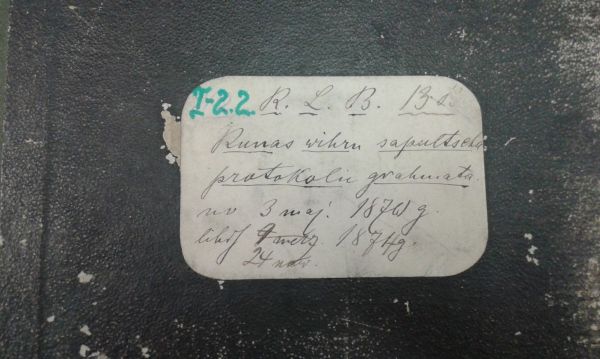 I-2.2. R. L. B. B-s.
Runas wihru sapultscha
protokolu grahmata.
no 3 maj. 1870 g.
lihdz 9 merz 1874 g.
24